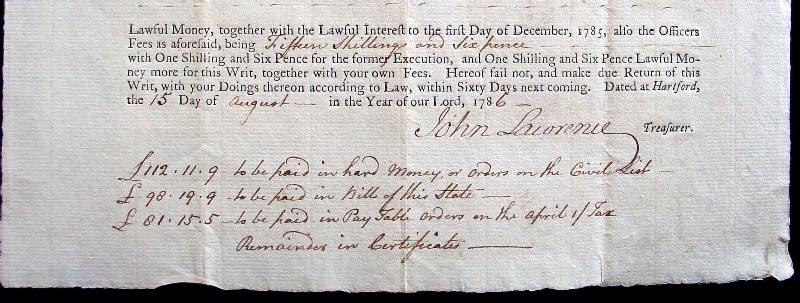 Lawful Money, together with the Lawful Interest to the first Day of December, 1785, also the Officers
Fees as aforesaid, being Fifteen Shillings and Six pence
with One Shilling and Six Pence for the former Execution, and One Shilling and Six Pence Lawful Mo-
ney more for this Writ, together with your own Fees. Hereof fail not, and make due Return of this
Writ, with your Doings thereon according to Law, within Sixty Days next coming. Dated at Hartford,
the 15 Day of august — in the Year of our Lord, 1786 —
John Lawrence Treasurer.
£112.11.9 to be paid in hard Money, or orders on the Civil List —
£98.19.9 — to be paid in Bills of this State —
£81.15.5 — to be paid in Pay Table orders on the april Tax
Remainder in Certificates —